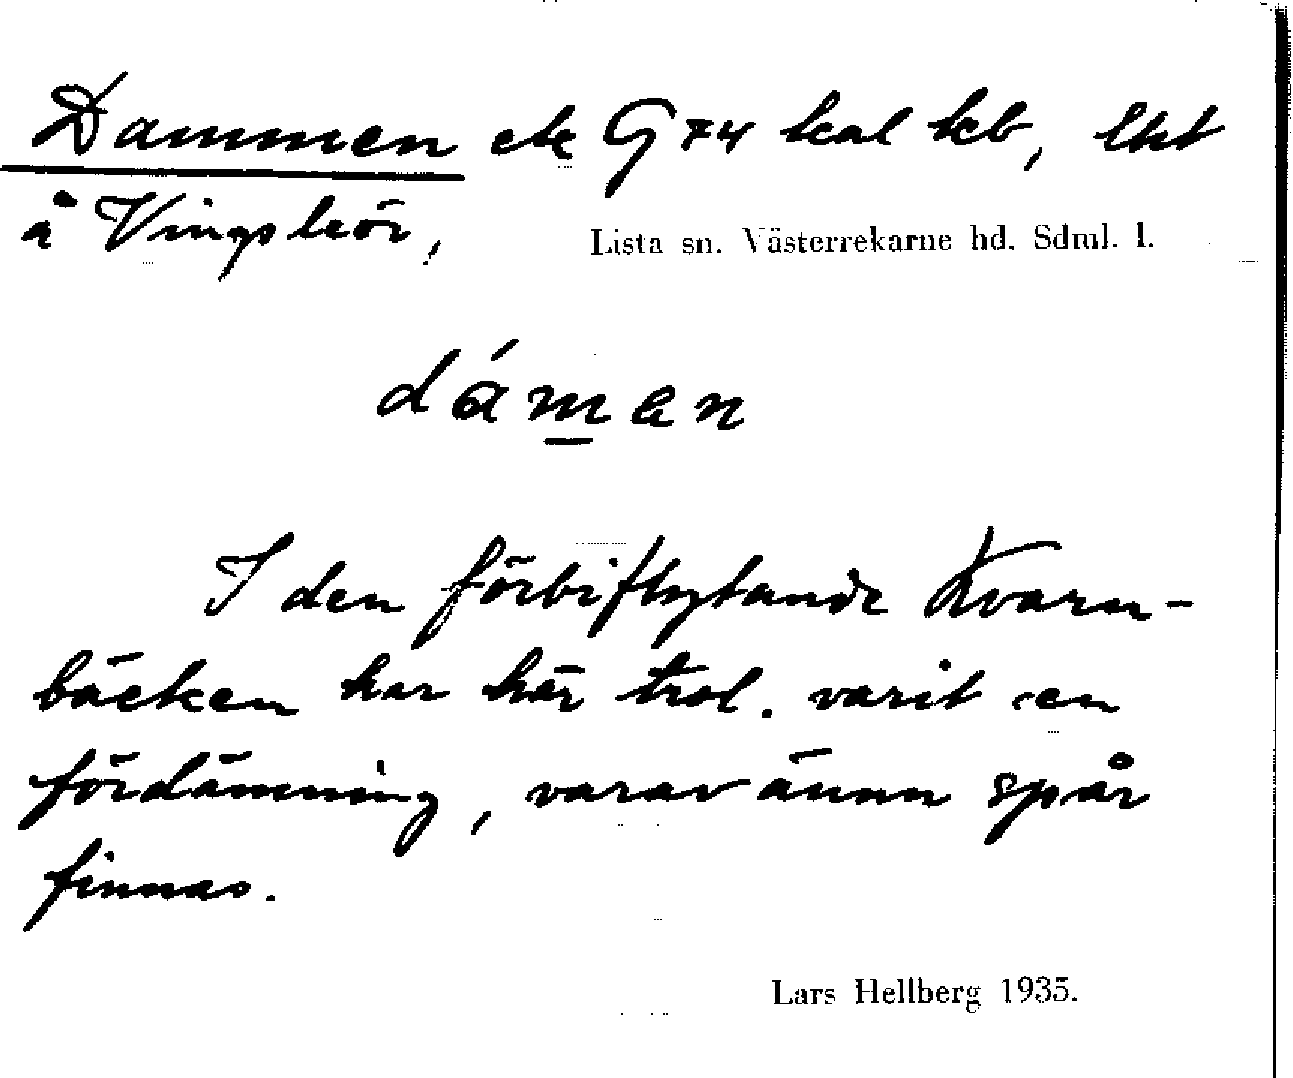 Dammen ek G 74 kal kb, lht
å Vingsleör,
Lista sn. Västerrekarne hd. Sdml. l.
dáman
I den förbiflytande Kvarn-
bäcken har här trol. varit en
fördämning, varav ännu spår
finnas.
Lars Hellberg 1935.